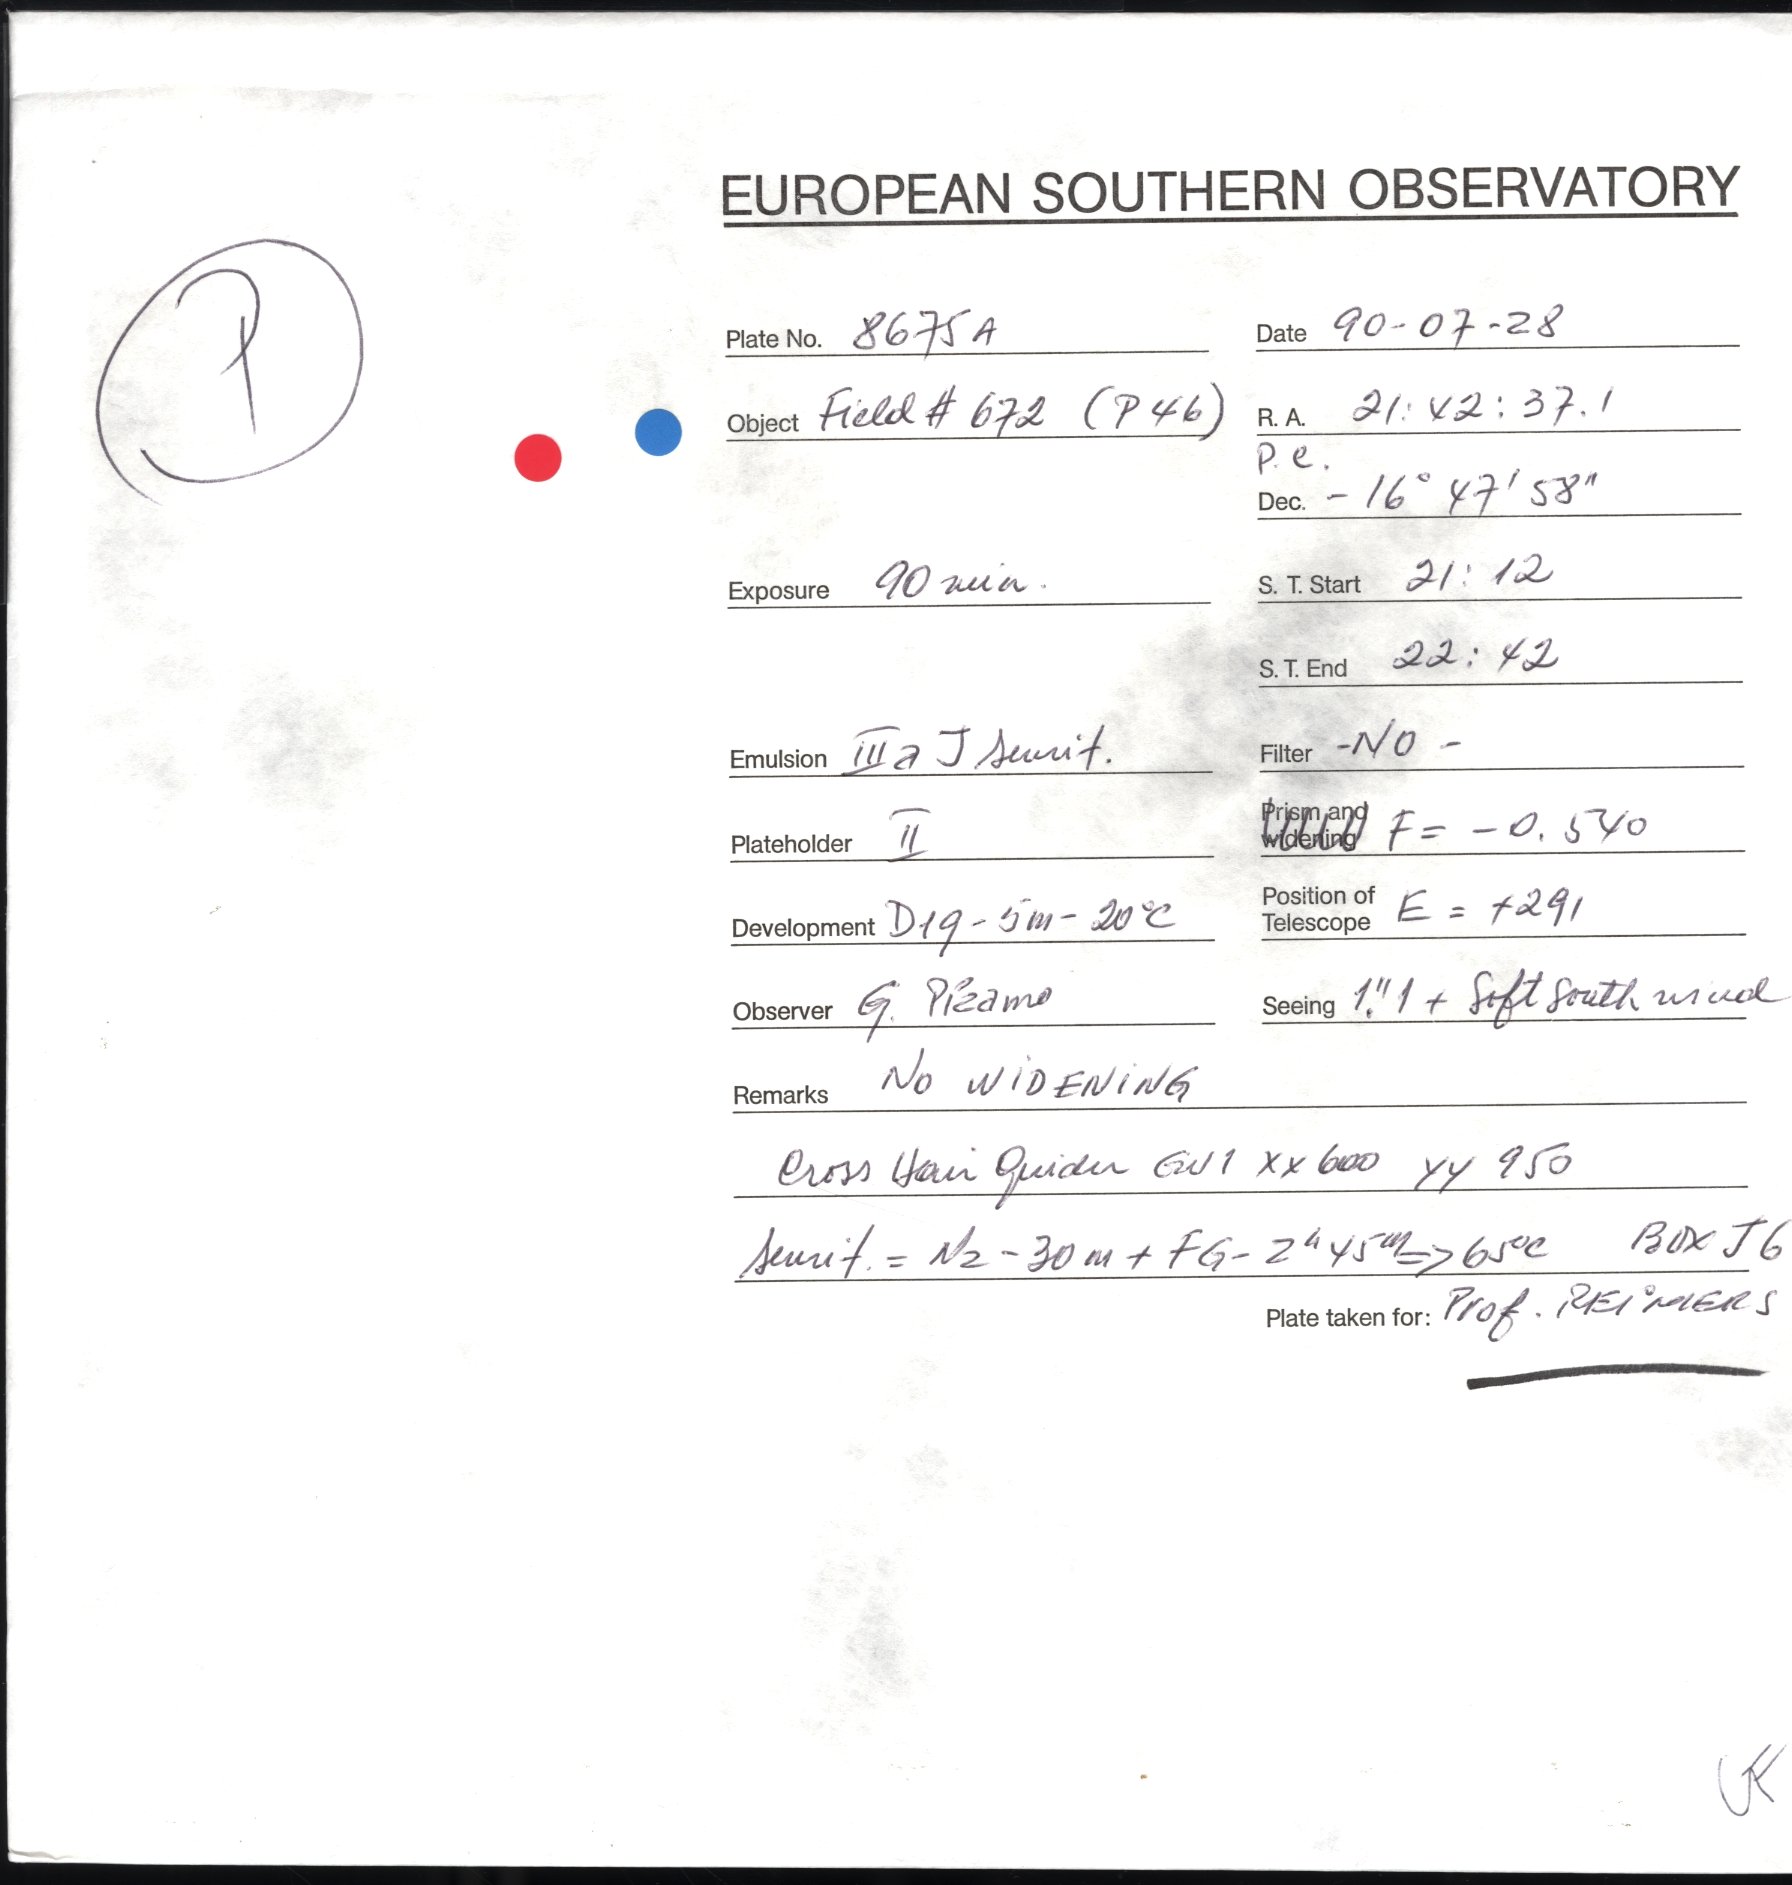 EUROPEAN SOUTHERN OBSERVATORY
P
Plate No. 8675A
Date 90-07-28
Object Field # 672 (P46)
R. A. 21:42:37.1
P.e.
Dec. -16° 47' 58"
Exposure 90 min.
S. T. Start 21:12
S. T. End 22:42
Emulsion IIIa J sensit.
Filter -NO-
Plateholder II
Prism and widening F= -0.540
Development D19-5m-20°C
Position of Telescope E = +291
Observer G. Pizarro
Seeing 1."1 + Soft South wind
Remarks No WIDENING
Cross Hair Guider GU1 XX 600 YY 950
Sensit. = N2-30m + FG-2h45m => 65°C BOX J6
Plate taken for: Prof. REIMERS